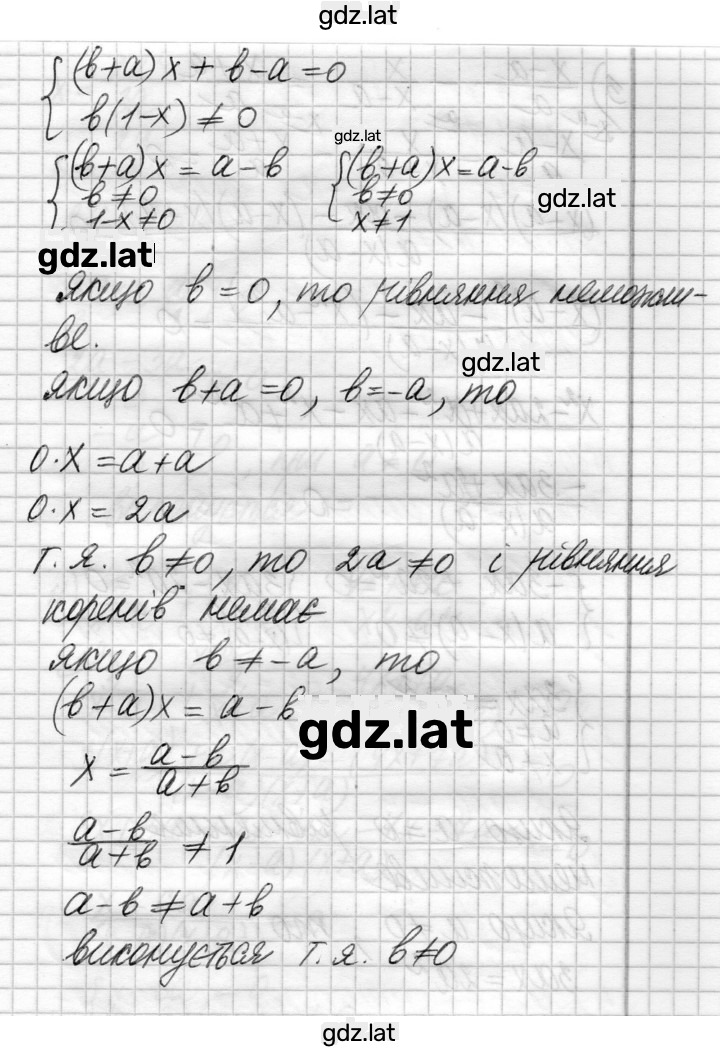 gdz.lat
{(b+a)x + b-a = 0
b(1-x) ≠ 0
gdz.lat
{(b+a)x = a-b {(b+a)x = a-b
b≠0 b≠0
1-x≠0 x≠1
gdz.lat
gdz.lat
якщо b=0, то рівняння неможли-
ве.
gdz.lat
якщо b+a=0, b=-a, то
0·x=a+a
0·x=2a
т.я. b≠0, то 2a≠0 і рівняння
коренів немає
якщо b≠-a, то
(b+a)x = a-b
gdz.lat
x = (a-b)/(a+b)
(a-b)/(a+b) ≠ 1
a-b≠a+b
виконується т.я. b≠0
gdz.lat